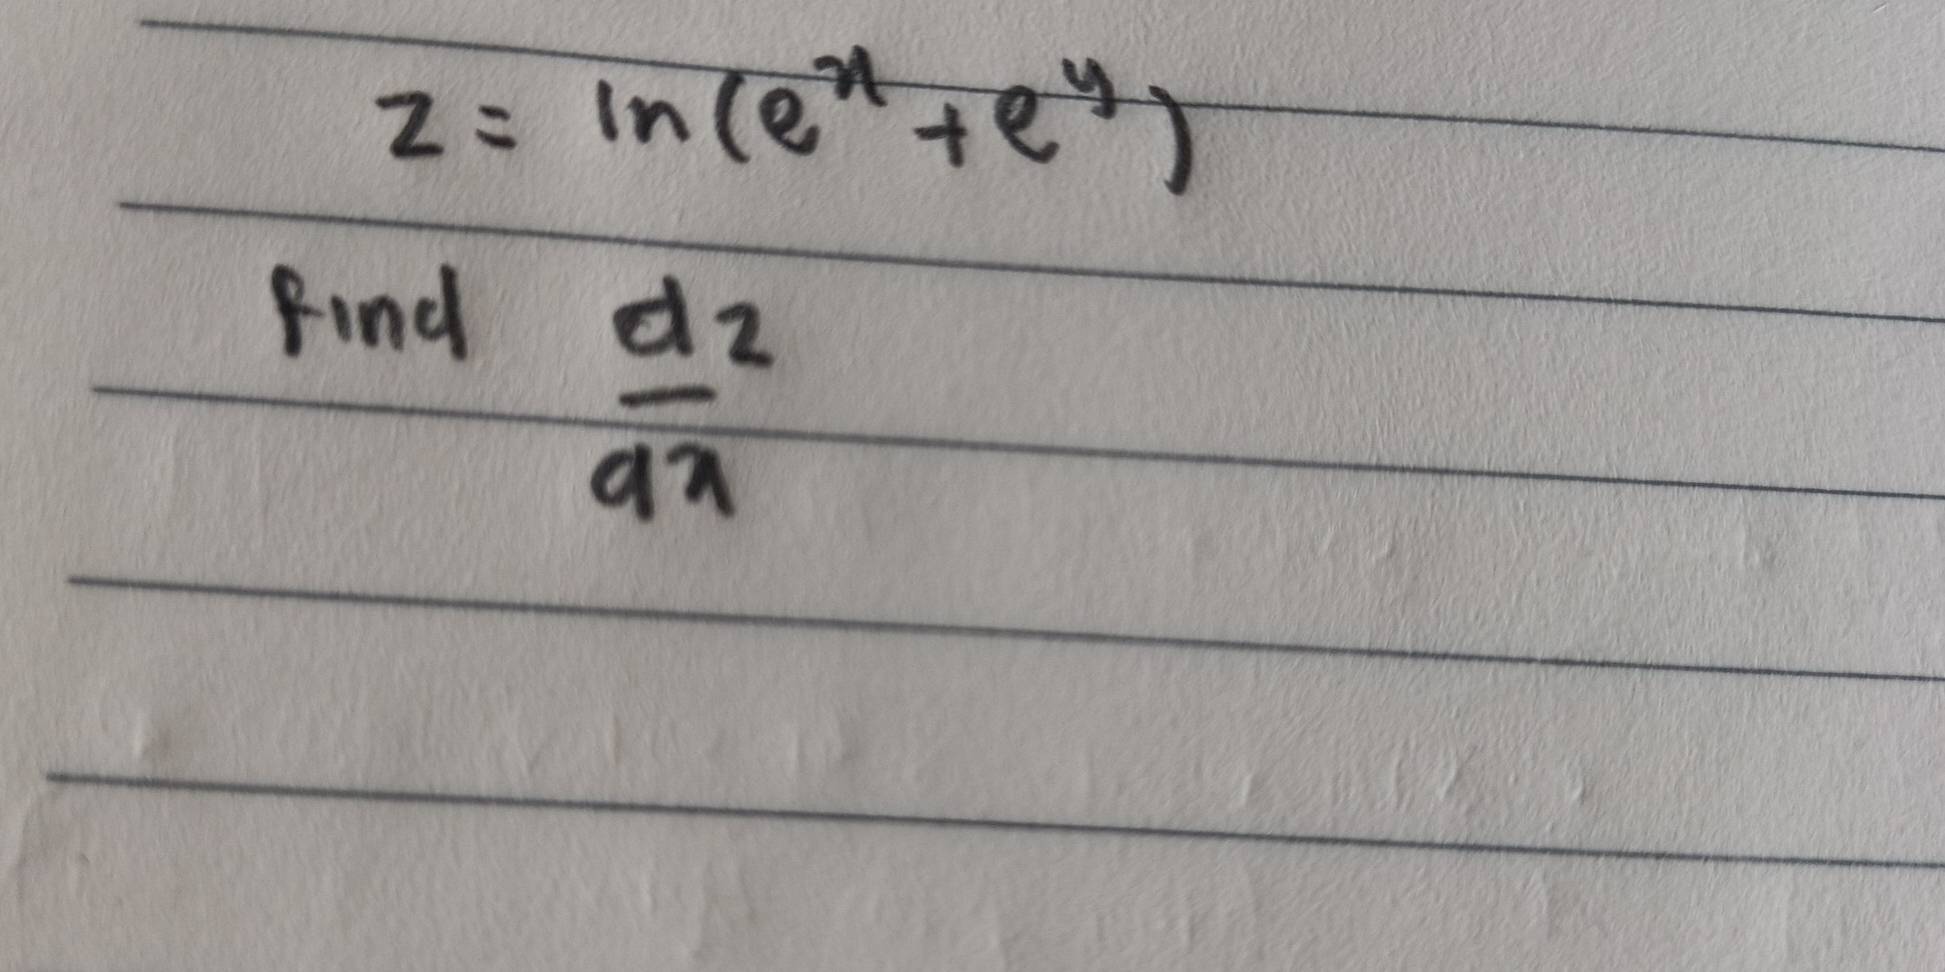 z = ln(e^x + e^y)
find dz
dx